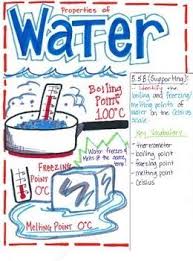 Properties of
Water
Boiling
Point
100°C
Freezing
Point
0°C
Water freezes &
Melts at the same
temp
Melting Point 0°C
5.5B (Supporting):
- Identify the
boiling and freezing/
melting points of
water on the Celsius
scale
Key Vocabulary
• thermometer
• boiling point
• freezing point
• melting point
• Celsius